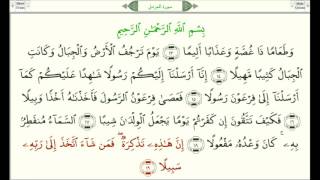 سورة المزمل
بِسْمِ اللَّهِ الرَّحْمَٰنِ الرَّحِيمِ
وَطَعَامًا ذَا غُصَّةٍ وَعَذَابًا أَلِيمًا ١٣ يَوْمَ تَرْجُفُ الْأَرْضُ وَالْجِبَالُ وَكَانَتِ
الْجِبَالُ كَثِيبًا مَّهِيلًا ١٤ إِنَّا أَرْسَلْنَا إِلَيْكُمْ رَسُولًا شَاهِدًا عَلَيْكُمْ كَمَا
أَرْسَلْنَا إِلَىٰ فِرْعَوْنَ رَسُولًا ١٥ فَعَصَىٰ فِرْعَوْنُ الرَّسُولَ فَأَخَذْنَاهُ أَخْذًا وَبِيلًا
١٦ فَكَيْفَ تَتَّقُونَ إِن كَفَرْتُمْ يَوْمًا يَجْعَلُ الْوِلْدَانَ شِيبًا ١٧ السَّمَاءُ مُنفَطِرٌ
بِهِ ۚ كَانَ وَعْدُهُ مَفْعُولًا ١٨ إِنَّ هَٰذِهِ تَذْكِرَةٌ ۖ فَمَن شَاءَ اتَّخَذَ إِلَىٰ رَبِّهِ
سَبِيلًا ١٩